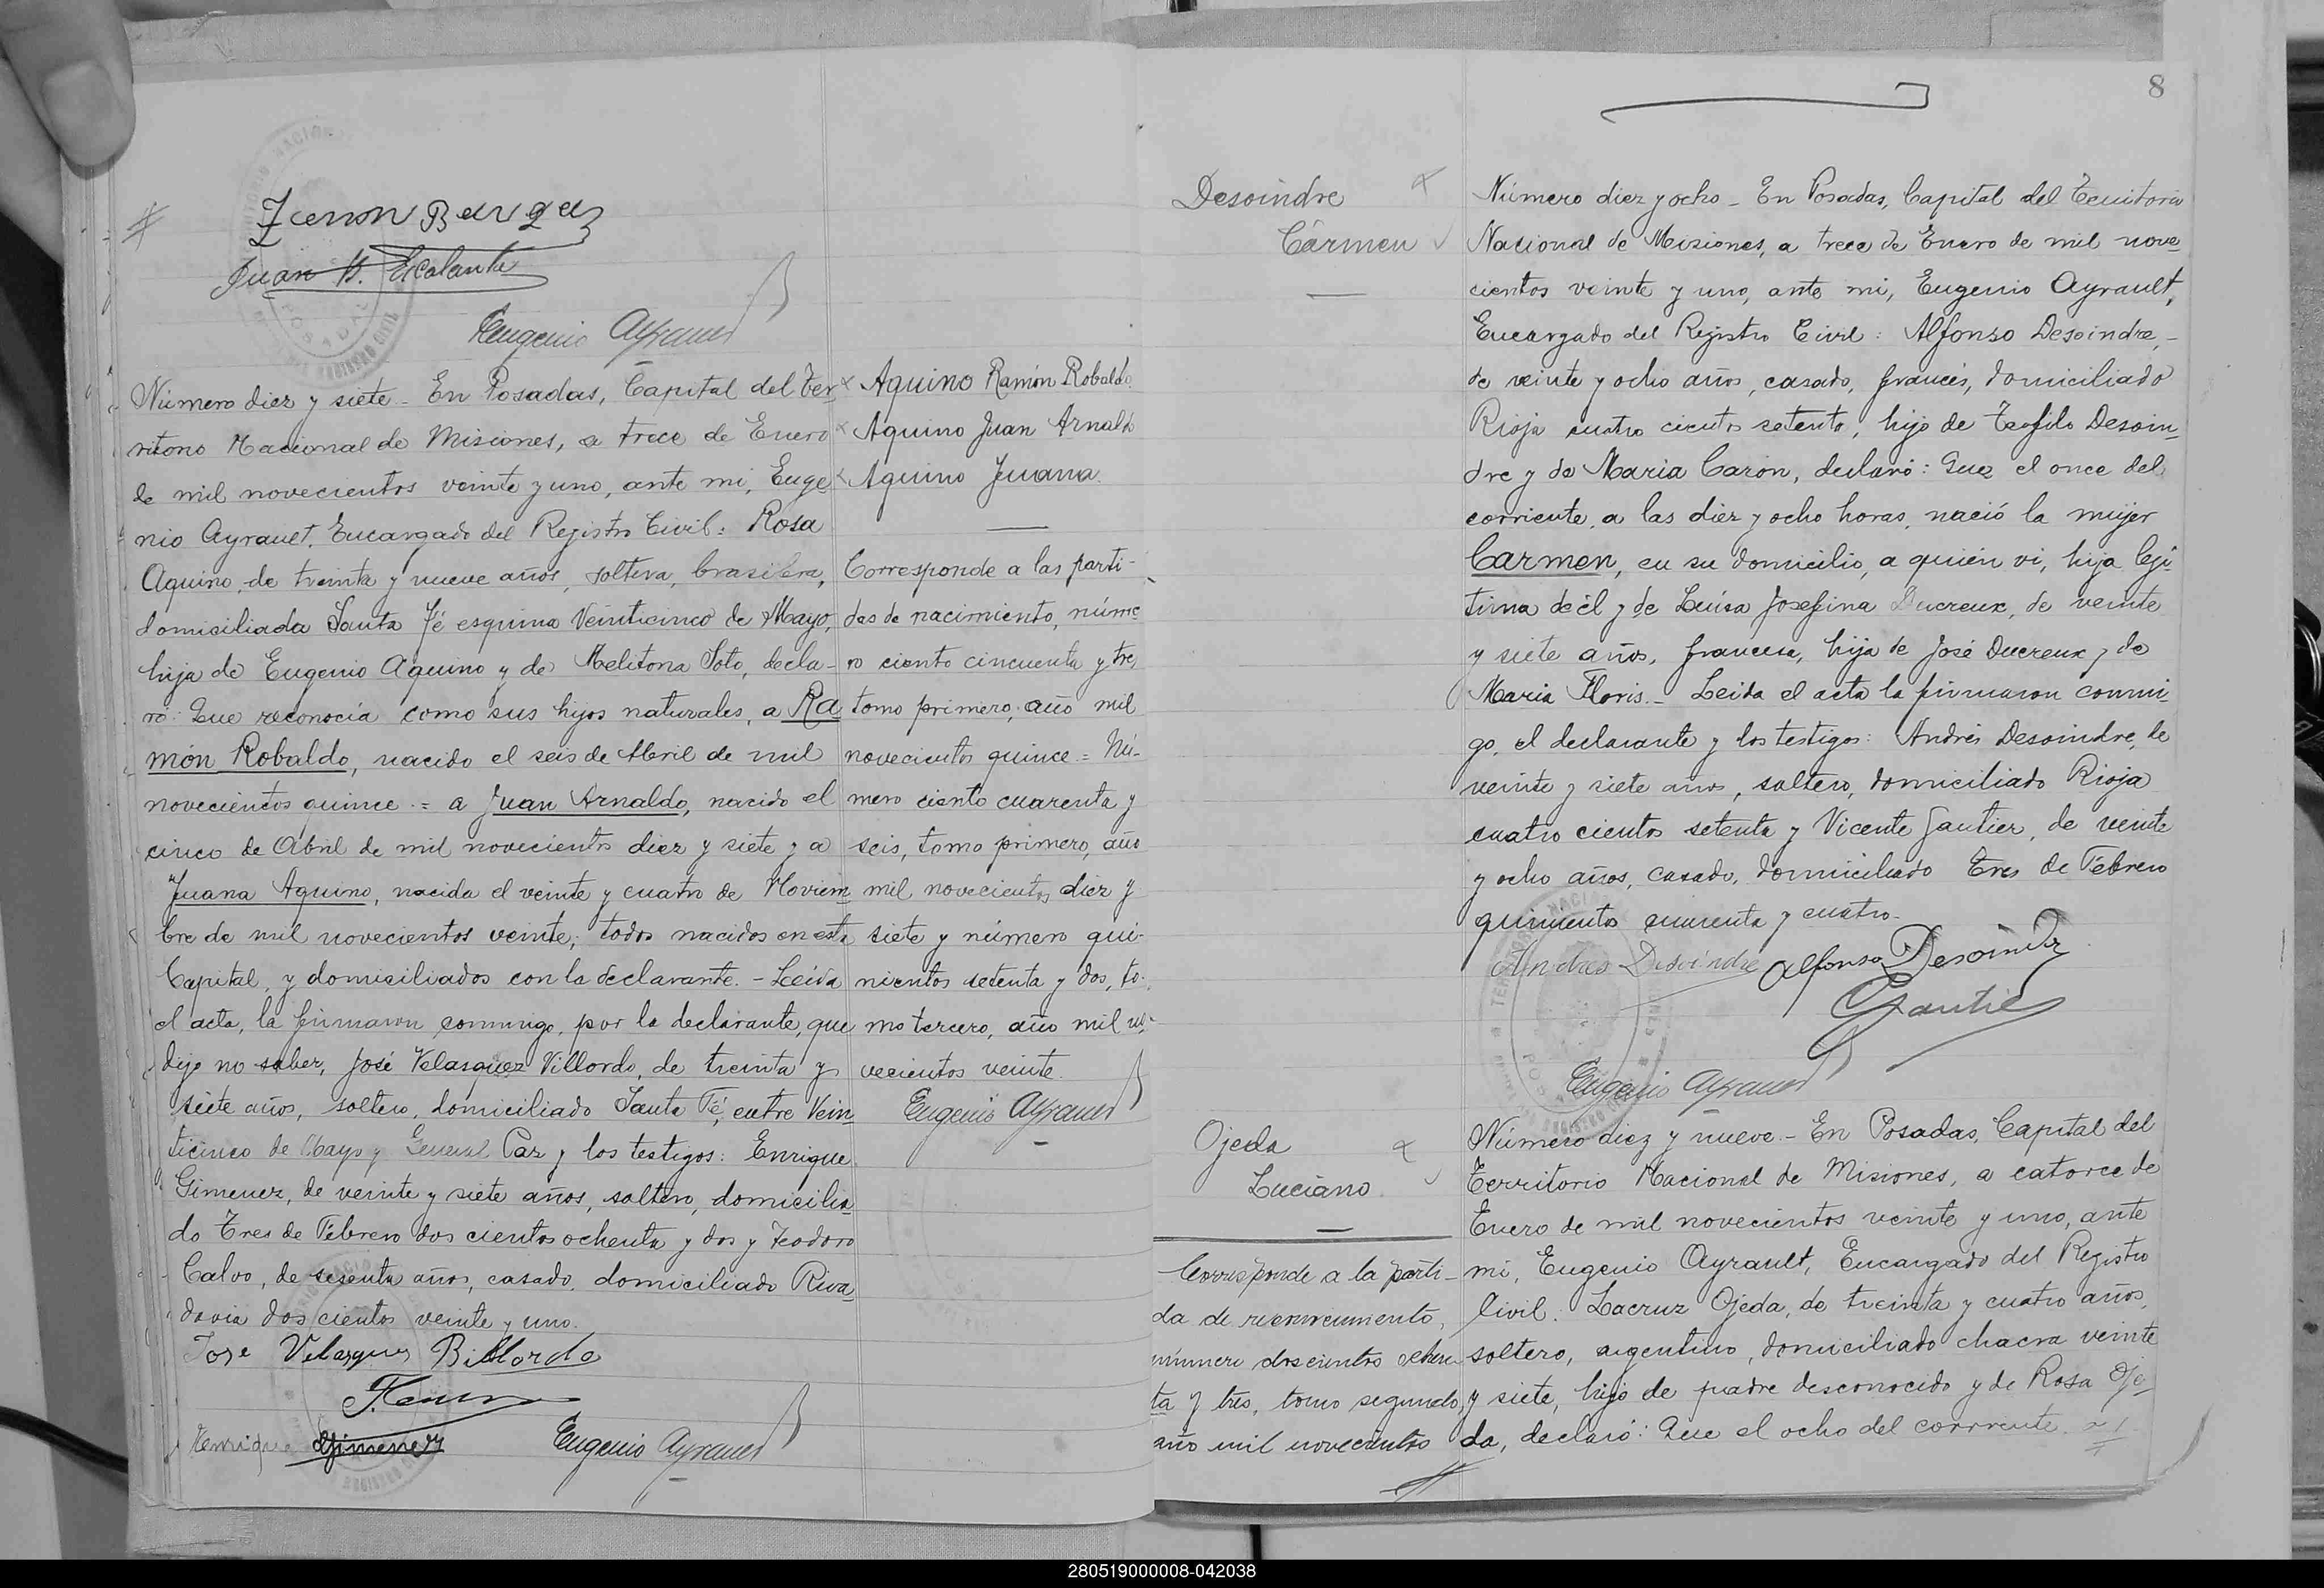 Juan B. Escalante
Eugenio Ayrault
Número diez y siete - En Posadas, Capital del Ter-
ritorio Nacional de Misiones, a trece de Enero
de mil novecientos veinte y uno, ante mi, Euge-
nio Ayrault, Encargado del Registro Civil: Rosa
Aquino, de treinta y nueve años, soltera, brasilera,
domiciliada Santa Fé esquina Veinticinco de Mayo,
hija de Eugenio Aquino y de Melitona Soto, decla-
ró: Que reconocía como sus hijos naturales, a Ra
món Robaldo, nacido el seis de Abril de mil
novecientos quince = a Juan Arnaldo, nacido el
cinco de Abril de mil novecientos diez y siete y a
Juana Aquino, nacida el veinte y cuatro de Noviem
bre de mil novecientos veinte; todos nacidos en esta
Capital, y domiciliados con la declarante. - Leída
el acta, la firmaron conmigo, por la declarante, que
dijo no saber, José Velasquez Villordo, de treinta y
siete años, soltero, domiciliado Santa Fé, entre Vein
ticinco de Mayo y General Paz y los testigos: Enrique
Gimenez, de veinte y siete años, soltero, domicilia
do Tres de Febrero dos cientos ochenta y dos y Teodoro
Calvo, de sesenta años, casado, domiciliado Riva
davia dos cientos veinte y uno.
Jose Velasques Billordo
Henrique Gimenez
Eugenio Ayrault
Aquino Ramón Robaldo
Aquino Juan Arnaldo
Aquino Juana
Corresponde a las parti-
das de nacimiento, núme
ro ciento cincuenta y tres
tomo primero, año mil
novecientos quince = Nú-
mero ciento cuarenta y
seis, tomo primero, año
mil novecientos diez y
siete y número qui-
nientos setenta y dos, to-
mo tercero, año mil no-
vecientos veinte.
Eugenio Ayrault
8
Desoindre
Cármen
Número diez y ocho - En Posadas, Capital del Territorio
Nacional de Misiones, a trece de Enero de mil nove
cientos veinte y uno, ante mi, Eugenio Ayrault,
Encargado del Registro Civil: Alfonso Desoindre, -
de veinte y ocho años, casado, francés, domiciliado
Rioja cuatro cientos setenta, hijo de Teofilo Desoin-
dre y de Maria Caron, declaró: Que el once del
corriente, a las diez y ocho horas, nació la mujer
Carmen, en su domicilio, a quién vi, hija legi
tima de él y de Luisa Josefina Ducreux, de veinte
y siete años, francesa, hija de José Ducreux y de
Maria Floris. - Leida el acta la firmaron conmi-
go, el declarante y los testigos: Andrés Desoindre, de
veinte y siete años, soltero, domiciliado Rioja
cuatro cientos setenta y Vicente Gautier, de veinte
y ocho años, casado, domiciliado Tres de Febrero
quinientos cuarenta y cuatro.
Andres Desoindre Alfonso Desoindre
Gautier
Eugenio Ayrault
Ojeda
Luciano
Corresponde a la parti-
da de reconocimiento,
número doscientos ochen
ta y tres, tomo segundo,
año mil novecientos
Número diez y nueve - En Posadas, Capital del
Territorio Nacional de Misiones, a catorce de
Enero de mil novecientos veinte y uno, ante
mi, Eugenio Ayrault, Encargado del Registro
Civil: Lacruz Ojeda, de treinta y cuatro años,
soltero, argentino, domiciliado chacra veinte
y siete, hijo de padre desconocido y de Rosa Oje-
da, declaró: Que el ocho del corriente
280519000008-042038